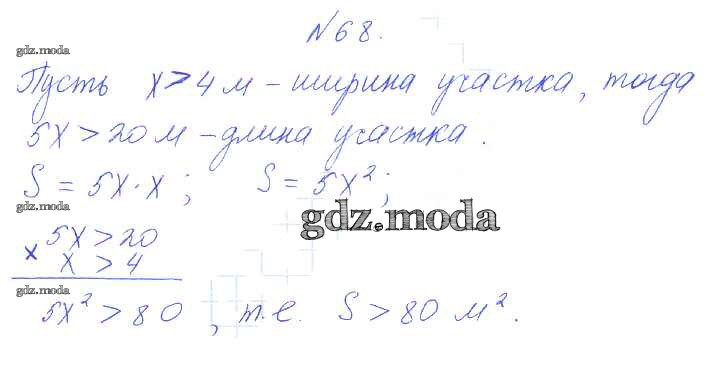 №68.
gdz.moda
Пусть x > 4 м – ширина участка, тогда
5x > 20 м – длина участка.
S = 5x · x; S = 5x²;
gdz.moda
gdz.moda
× 5x > 20
x > 4
gdz.moda
5x² > 80, т.е. S > 80 м².